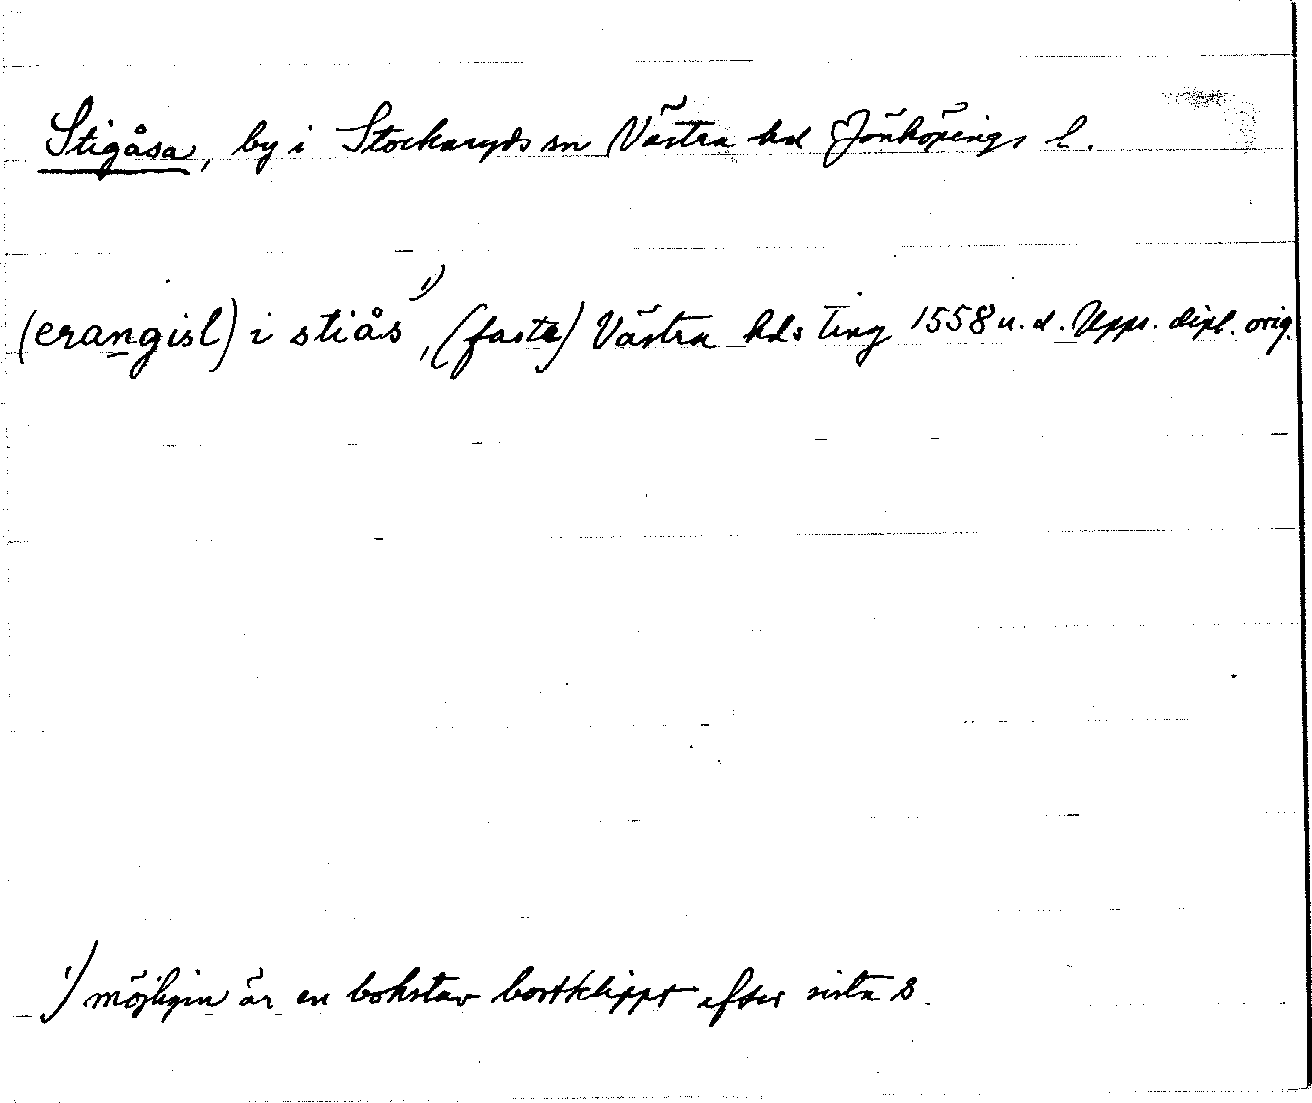 Stigåsa, by i Stockaryds sn Västra hd Jönköpings l.
(erangisl) i stiås ¹⁾, (faste) Västra hds ting 1558 u. d. Upps. dipl. orig.
¹⁾ möjligen är en bokstav bortklippt efter sista s.